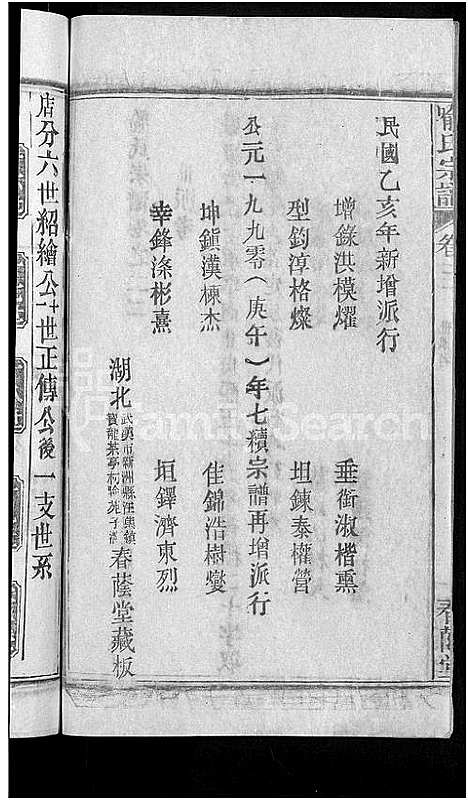 喻氏宗譜
卷三
春蔭堂
民國乙亥年新增派行
增錄洪模燿
垂銜淑楷熏
型鈞淳格燦
坦鍊泰權營
公元一九九零(庚午)年七續宗譜再增派行
坤鎮漢棟杰
佳錦浩樹燮
幸鋒滌彬熹
垣鐸濟東烈
湖北
武漢市新洲縣汪集鎮
寶龍茶亭村喻苑子灣
春蔭堂藏板
店分六世紹繪公十世正傳公後一支世系